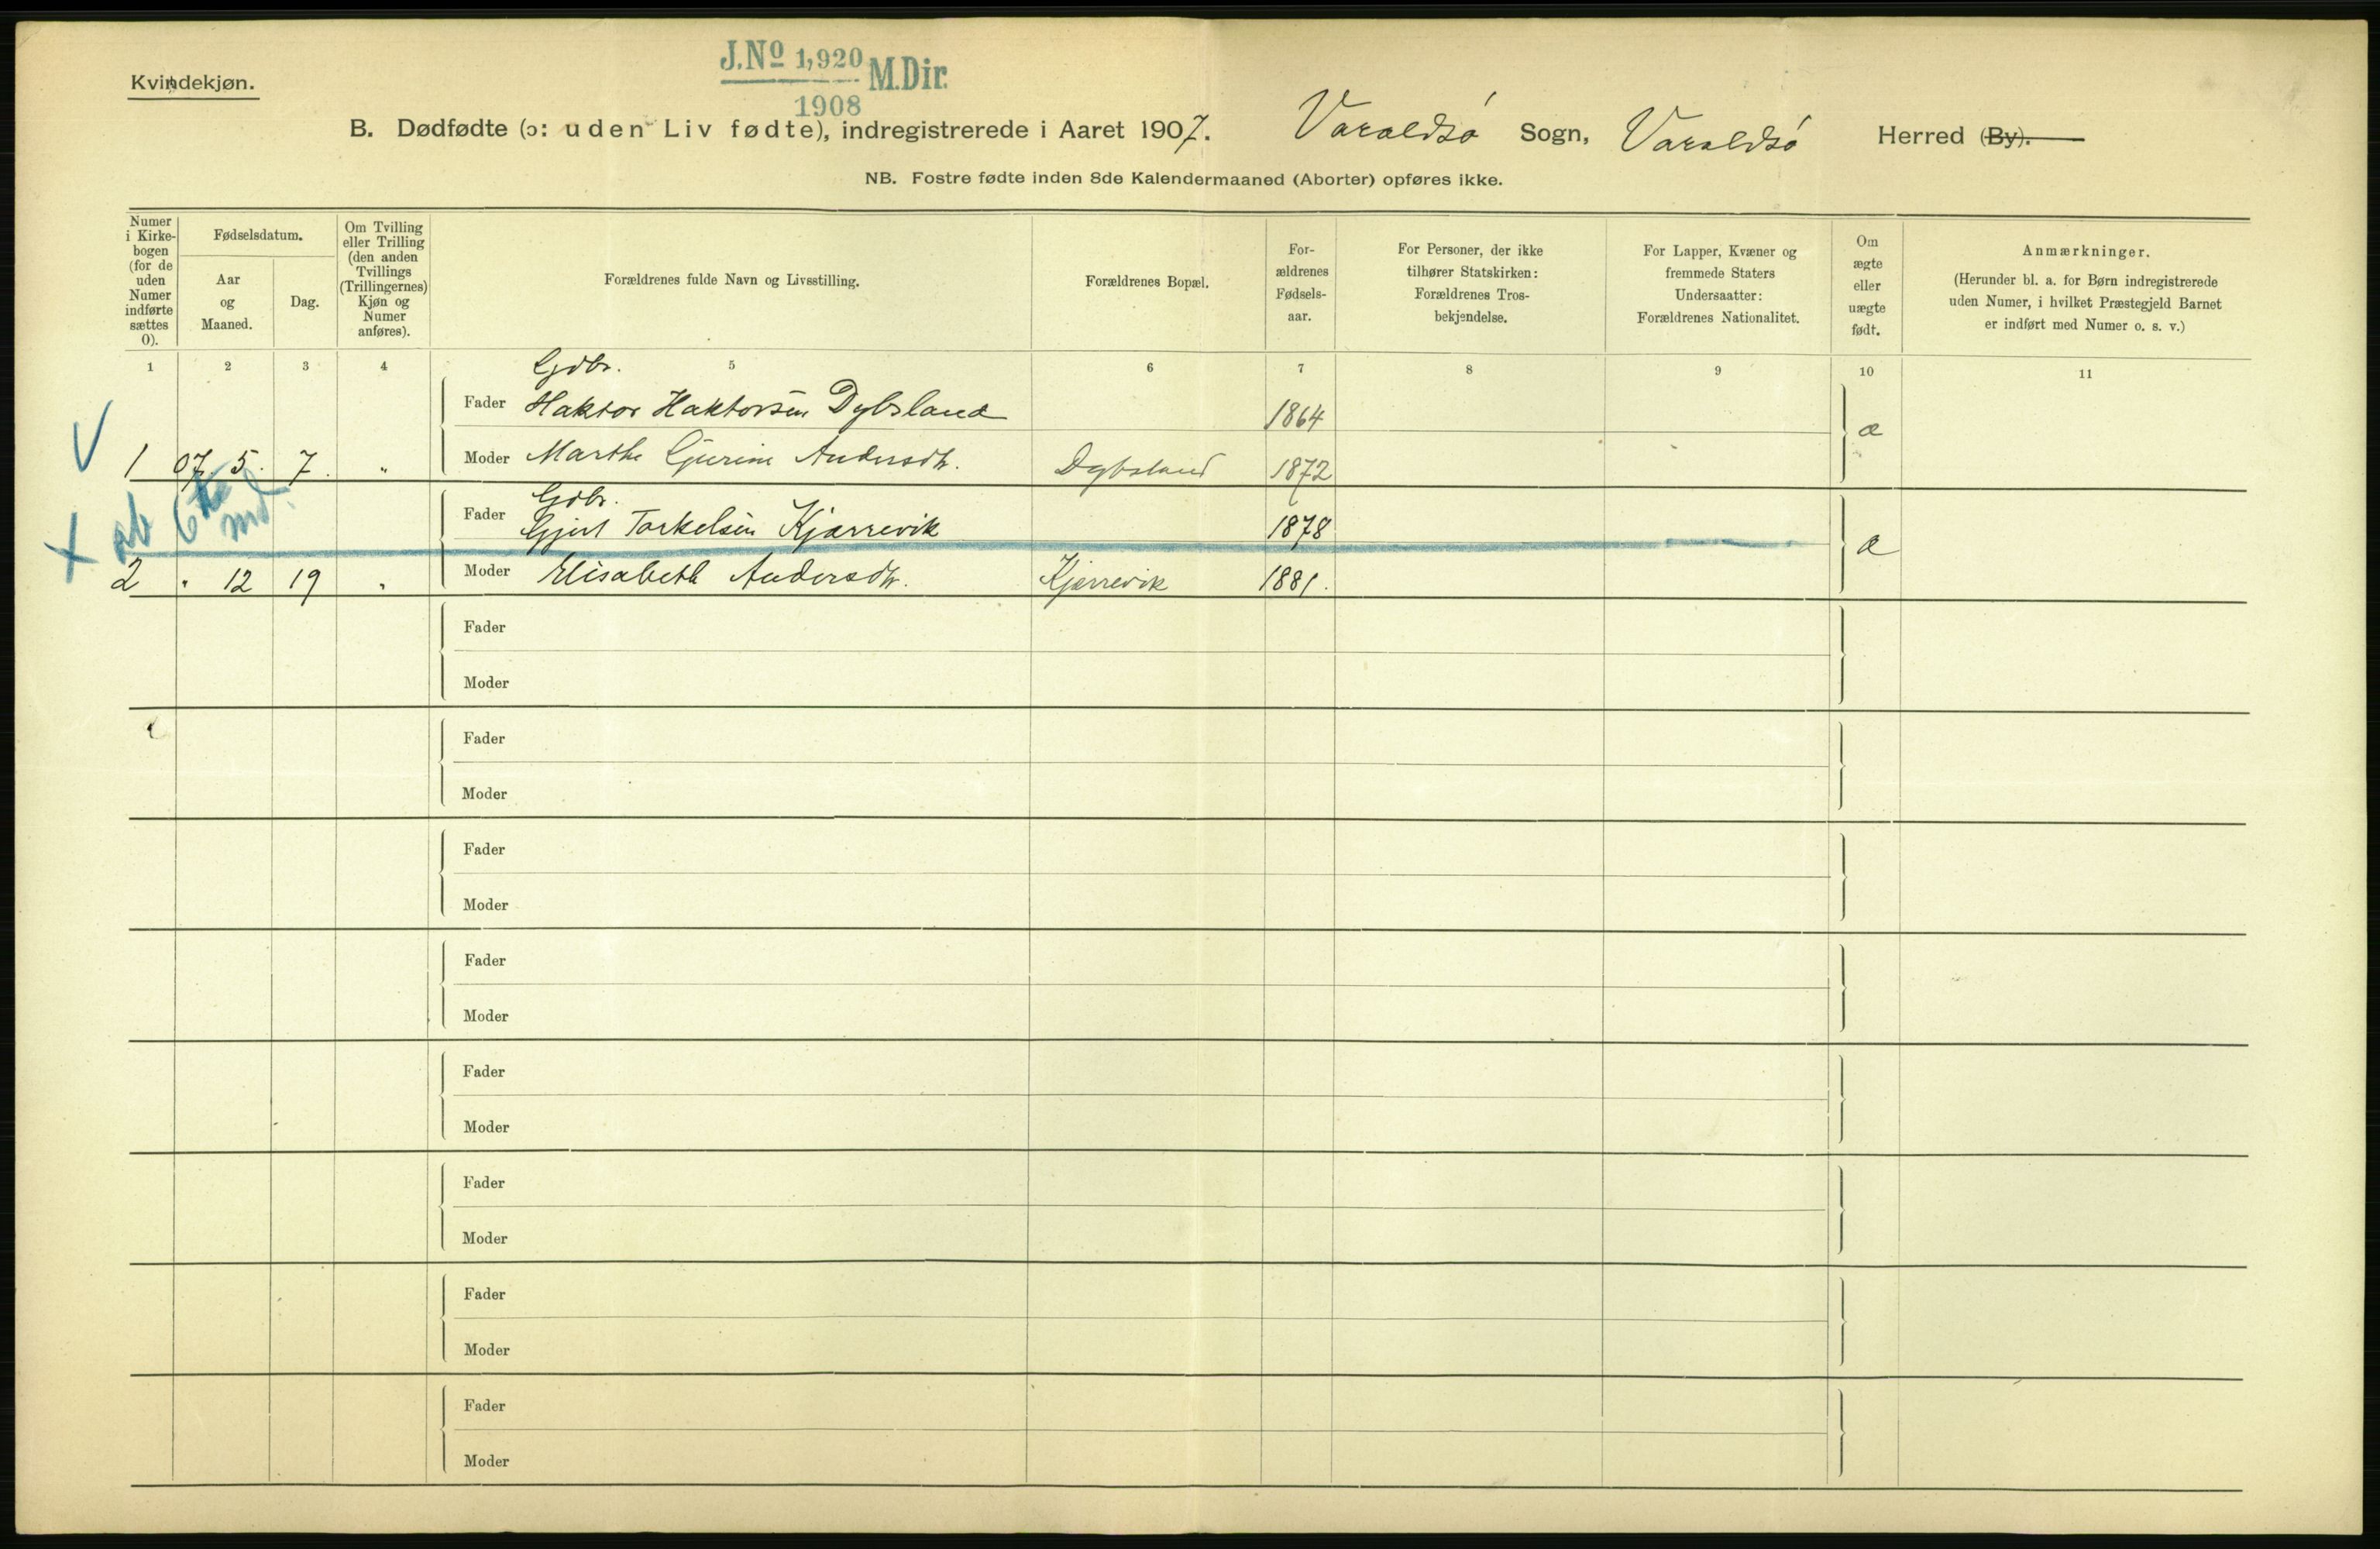 J.Nº 1,920 M.Dir.
1908
Kvindekjøn.
B. Dødfødte (ɔ: uden Liv fødte), indregistrerede i Aaret 1907. Varaldsö Sogn, Varaldsö Herred (By).
NB. Fostre fødte inden 8de Kalendermaaned (Aborter) opføres ikke.
Numer i Kirke-bogen (for de uden Numer indførte sættes 0).
Fødselsdatum.
Aar og Maaned.
Dag.
Om Tvilling eller Trilling (den anden Tvillings (Trillingernes) Kjøn og Numer anføres).
Forældrenes fulde Navn og Livsstilling.
Forældrenes Bopæl.
For-ældrenes Fødsels-aar.
For Personer, der ikke tilhører Statskirken: Forældrenes Tros-bekjendelse.
For Lapper, Kvæner og fremmede Staters Undersaatter: Forældrenes Nationalitet.
Om ægte eller uægte født.
Anmærkninger.
(Herunder bl. a. for Børn indregistrerede uden Numer, i hvilket Præstegjeld Barnet er indført med Numer o. s. v.)
1 2 3 4 5 6 7 8 9 10 11
Gdbr.
Fader Haktor Haktorsen Dybsland 1864
V 1 07. 5. 7. " Moder Marthe Gurine Andersdtr. Dybsland 1872 æ
X ab 6te md.
Gdbr.
Fader Gjert Torkelsen Kjærrevik 1878
2 " 12 19 " Moder Elisabeth Andersdtr. Kjærrevik 1881. æ
Fader
Moder
Fader
Moder
Fader
Moder
Fader
Moder
Fader
Moder
Fader
Moder
Fader
Moder
Fader
Moder